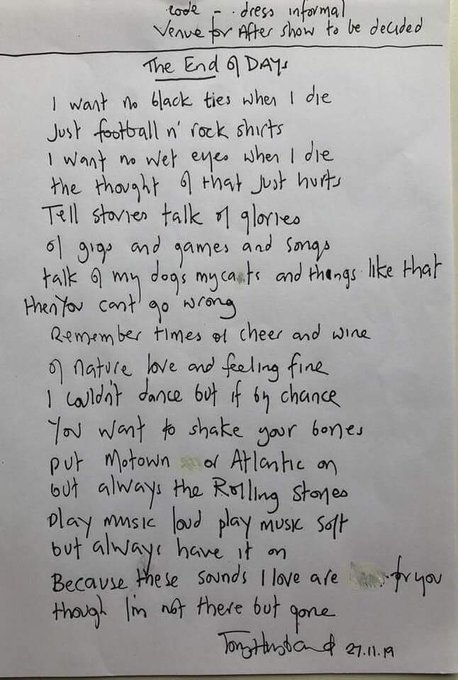 code - dress informal
Venue for After show to be decided
The End of DAYs
I want no black ties when I die
Just football n' rock shirts
I want no wet eyes when I die
the thought of that just hurts
Tell stories talk of glories
of gigs and games and songs
talk of my dogs my cats and things like that
then You cant go wrong
Remember times of cheer and wine
of nature love and feeling fine
I couldn't dance but if by chance
You want to shake your bones
put Motown or Atlantic on
but always the Rolling Stones
Play music loud play music soft
but always have it on
Because these sounds I love are for you
though I'm not there but gone
Tony Husband 27.11.19